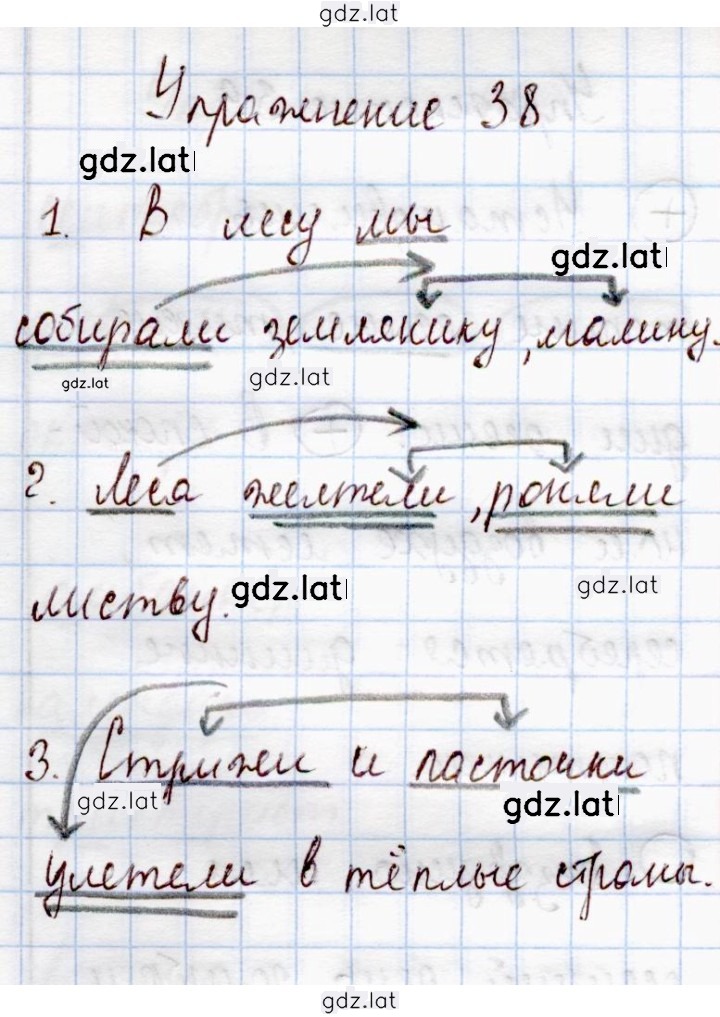 gdz.lat
Упражнение 38
gdz.lat
1. В лесу мы
gdz.lat
собирали землянику, малину.
gdz.lat
gdz.lat
2. Леса желтели, роняли
листву.
gdz.lat
gdz.lat
3. Стрижи и ласточки
gdz.lat
gdz.lat
улетели в тёплые страны.
gdz.lat